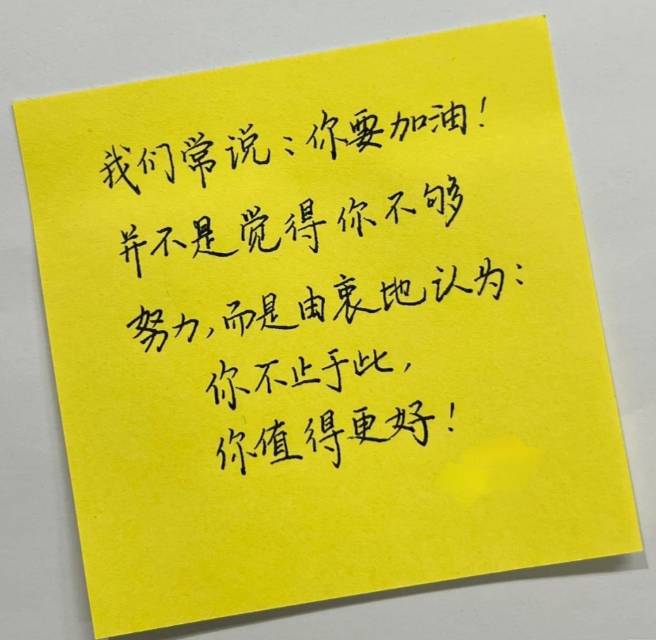 我们常说：你要加油！
并不是觉得你不够
努力，而是由衷地认为：
你不止于此，
你值得更好！